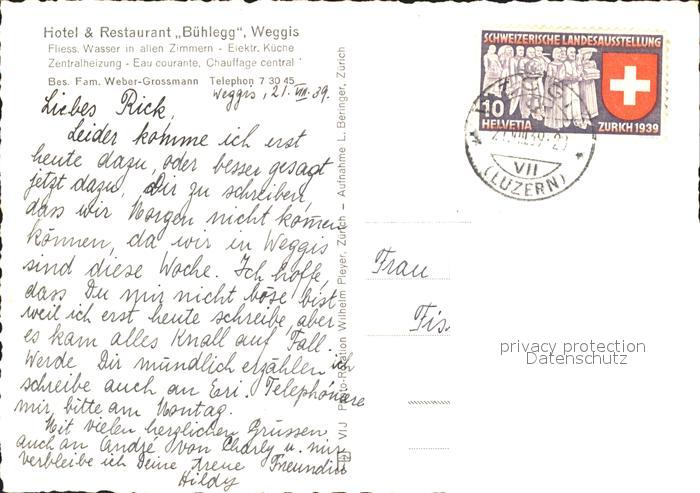 Hotel & Restaurant „Bühlegg", Weggis
Fliess. Wasser in allen Zimmern - Elektr. Küche
Zentralheizung - Eau courante, Chauffage central
Bes. Fam. Weber-Grossmann Telephon 7 30 45
Weggis, 21. VIII. 39.
Liebes Rick,
Leider komme ich erst
heute dazu, oder besser gesagt
jetzt dazu, Dir zu schreiben,
dass wir Morgen nicht kommen
können, da wir in Weggis
sind diese Woche. Ich hoffe,
dass Du mir nicht böse bist
weil ich erst heute schreibe, aber
es kam alles Knall auf Fall.
Werde Dir mündlich erzählen ich
schreibe auch an Eri. Telephoniere
mir bitte am Montag.
Mit vielen herzlichen Grüssen
auch an André von Charly u. mir
verbleibe ich Deine treue Freundin
Hildy
VIJ Photo-Rotation Wilhelm Pleyer, Zürich - Aufnahme L. Beringer, Zürich
SCHWEIZERISCHE LANDESAUSSTELLUNG
10
HELVETIA ZÜRICH 1939
VII
(LUZERN)
Frau
Fis
privacy protection
Datenschutz